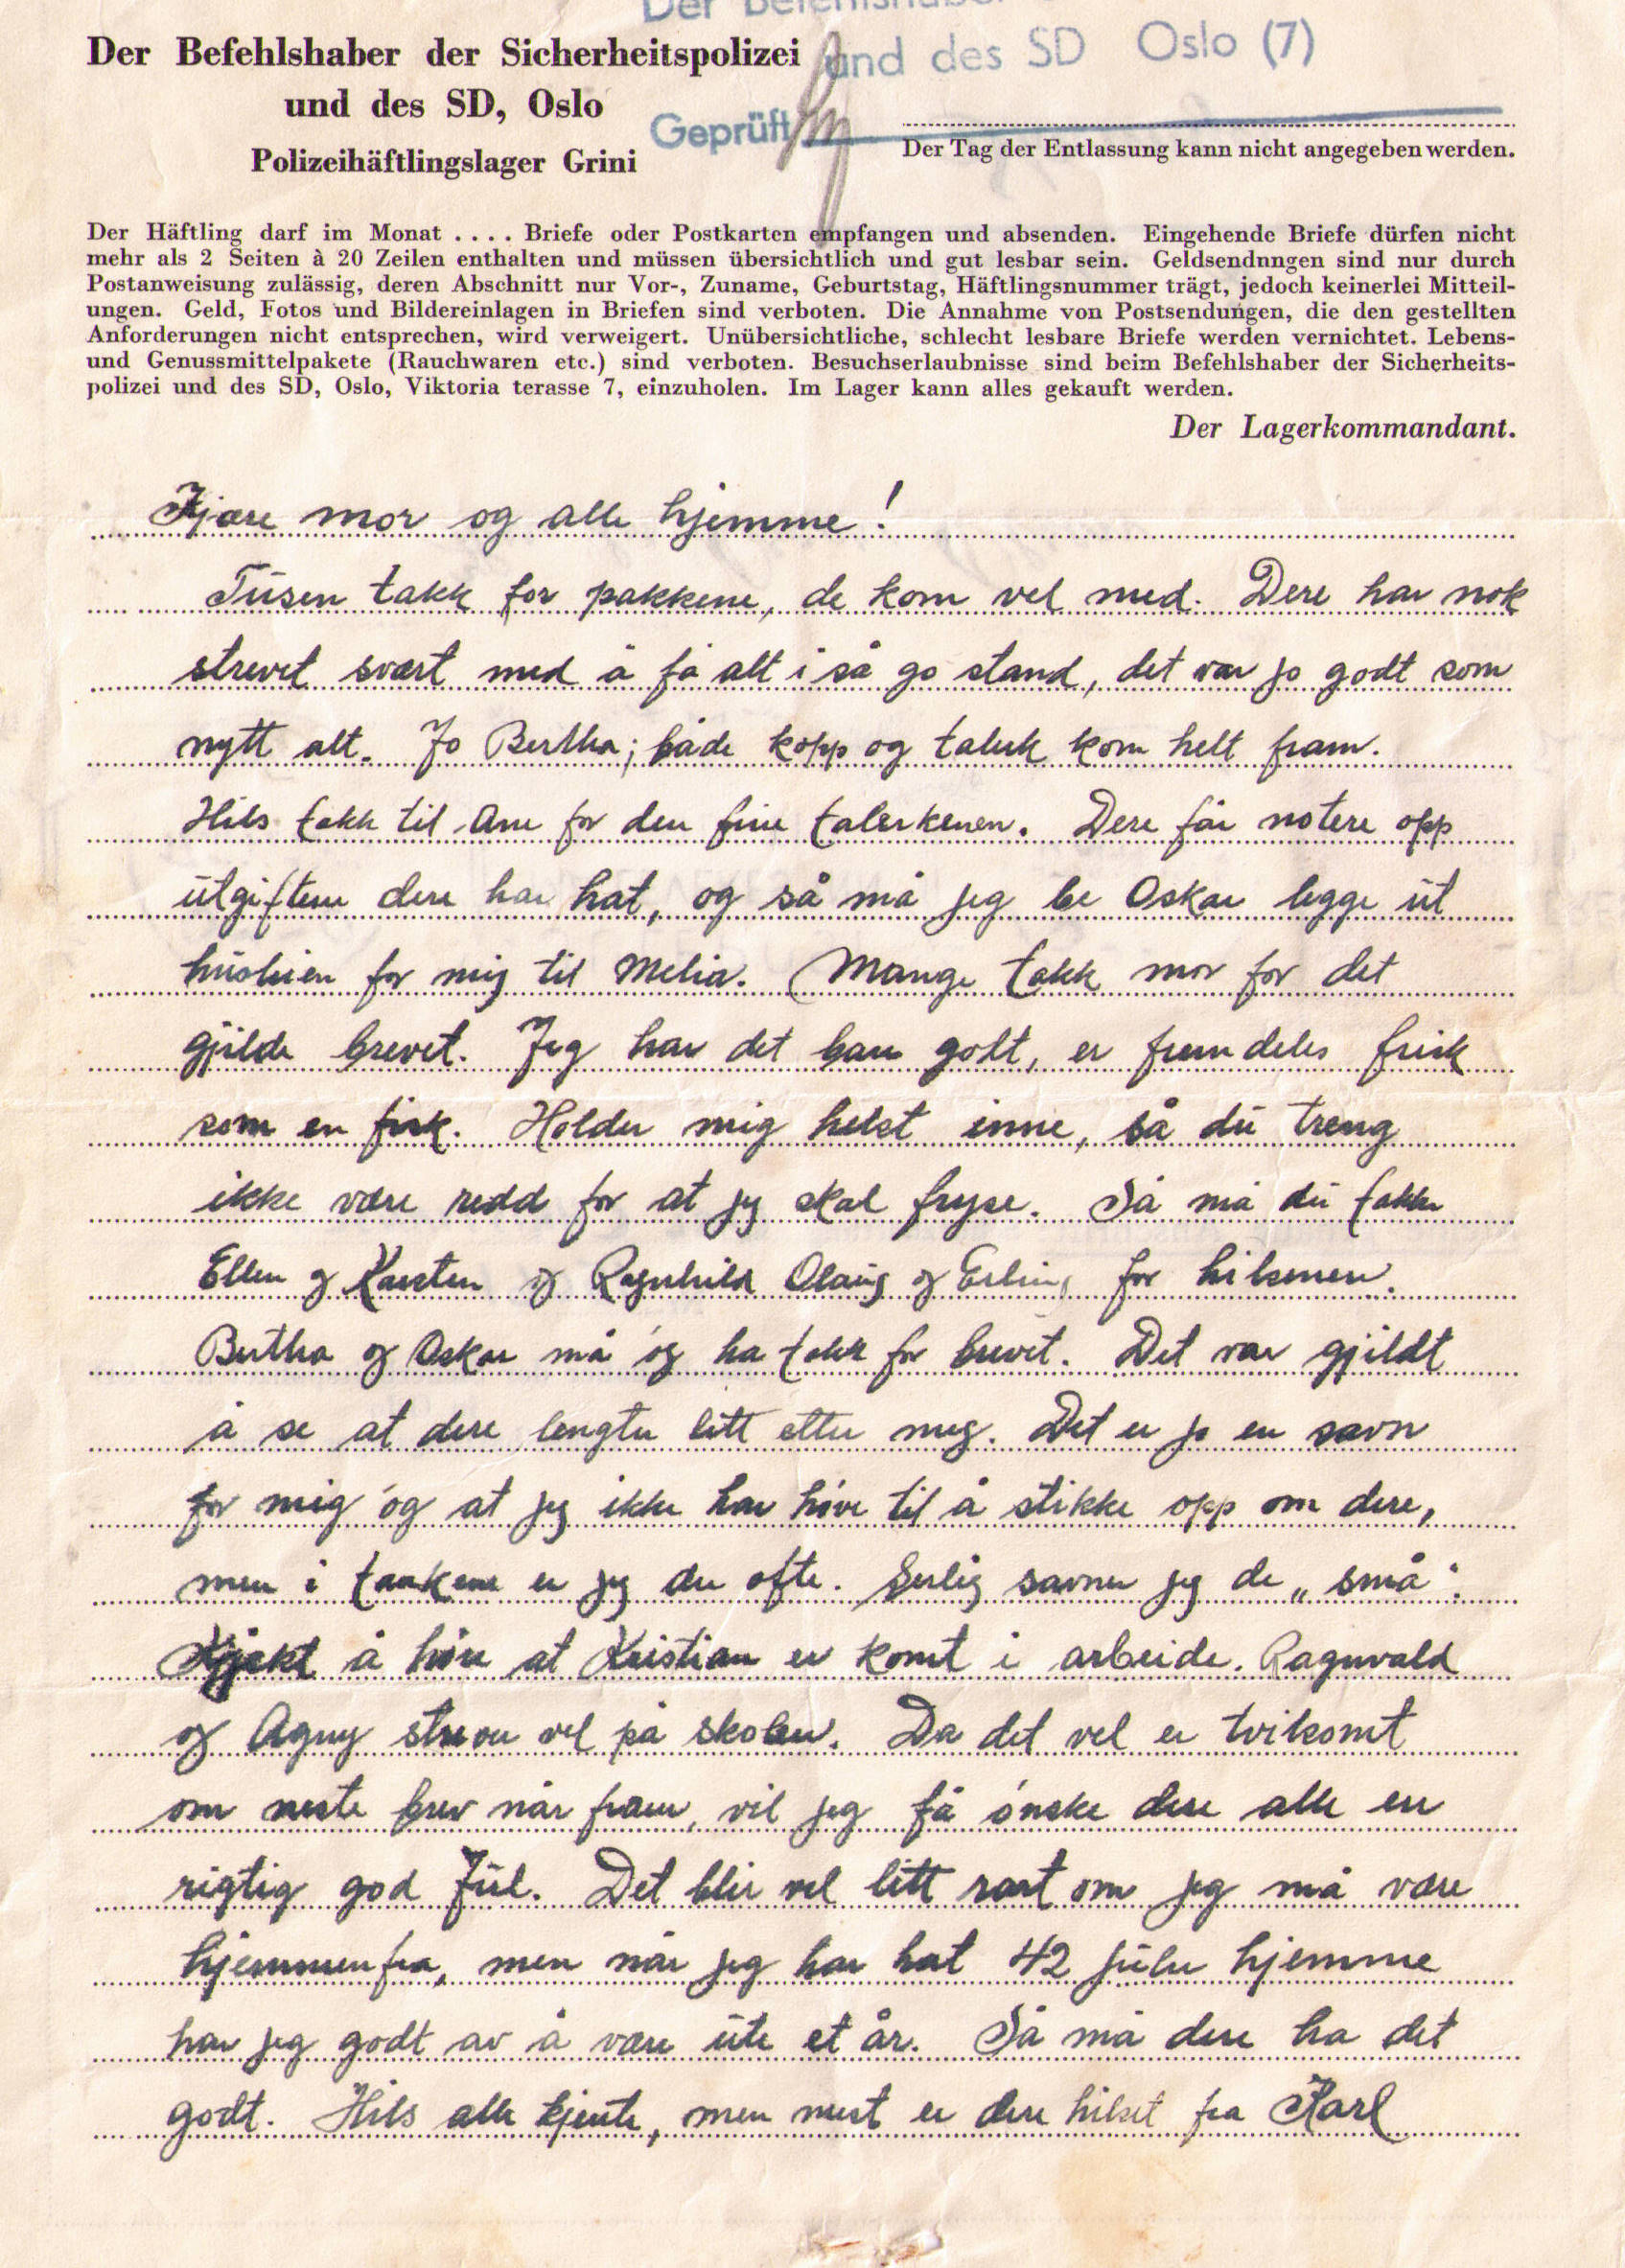 Der Befehlshaber
Der Befehlshaber der Sicherheitspolizei
und des SD Oslo (7)
und des SD, Oslo
Geprüft
Polizeihäftlingslager Grini
Der Tag der Entlassung kann nicht angegeben werden.
Der Häftling darf im Monat .... Briefe oder Postkarten empfangen und absenden. Eingehende Briefe dürfen nicht
mehr als 2 Seiten à 20 Zeilen enthalten und müssen übersichtlich und gut lesbar sein. Geldsendnngen sind nur durch
Postanweisung zulässig, deren Abschnitt nur Vor-, Zuname, Geburtstag, Häftlingsnummer trägt, jedoch keinerlei Mitteil-
ungen. Geld, Fotos und Bildereinlagen in Briefen sind verboten. Die Annahme von Postsendungen, die den gestellten
Anforderungen nicht entsprechen, wird verweigert. Unübersichtliche, schlecht lesbare Briefe werden vernichtet. Lebens-
und Genussmittelpakete (Rauchwaren etc.) sind verboten. Besuchserlaubnisse sind beim Befehlshaber der Sicherheits-
polizei und des SD, Oslo, Viktoria terasse 7, einzuholen. Im Lager kann alles gekauft werden.
Der Lagerkommandant.
Kjære mor og alle hjemme!
Tusen takk for pakkene, de kom vel med. Dere har nok
strevet svært med å få alt i så go stand, det var jo godt som
nytt alt. Jo Bertha; både kopp og talerk kom helt fram.
Hils takk til Ane for den fine talerkenen. Dere får notere opp
utgiftene dere har hat, og så må jeg be Oskar legge ut
husleien for mig til Melia. Mange takk mor for det
gjilde brevet. Jeg har det bare godt, er fremdeles frisk
som en fisk. Holder mig helst inne, så du treng
ikke være redd for at jeg skal fryse. Så må du takke
Ellen og Karsten og Ragnhild Olaug og Erling for hilsenen.
Bertha og Oskar må óg ha takk for brevet. Det var gjildt
å se at dere lengter litt etter meg. Det er jo en savn
for mig óg at jeg ikke har høve til å stikke opp om dere,
men i tankene er jeg der ofte. Serlig savner jeg de „små".
Kjækt å høre at Kristian er komt i arbeide. Ragnvald
og Agny strever vel på skolen. Da det vel er tvilsomt
om neste brev når fram, vil jeg få ønske dere alle en
rigtig god Jul. Det blir vel litt rart om jeg må være
hjemmenfra, men når jeg har hat 42 juler hjemme
har jeg godt av å være ute et år. Så må dere ha det
godt. Hils alle kjente, men mest er dere hilset fra Karl